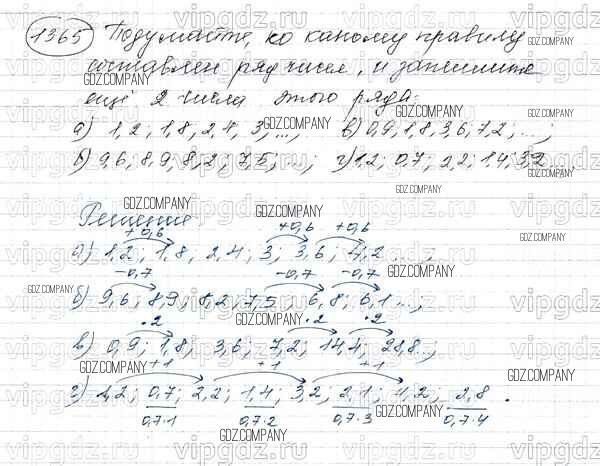 1365 Подумайте, по какому правилу
составлен ряд чисел, и запишите
ещё 2 числа этого ряда:
а) 1,2; 1,8; 2,4; 3; ...; в) 0,9; 1,8; 3,6; 7,2; ...;
б) 9,6; 8,9; 8,2; 7,5; ...; г) 1,2; 0,7; 2,2; 1,4; 3,2
Решение
+0,6 +0,6 +0,6
а) 1,2; 1,8; 2,4; 3; 3,6; 4,2 ...;
-0,7 -0,7 -0,7
б) 9,6; 8,9; 8,2; 7,5; 6,8; 6,1 ...;
·2 ·2 ·2
в) 0,9; 1,8; 3,6; 7,2; 14,4; 28,8...;
+1 +1 +1
г) 1,2; 0,7; 2,2; 1,4; 3,2; 2,1; 4,2; 2,8.
0,7·1 0,7·2 0,7·3 0,7·4